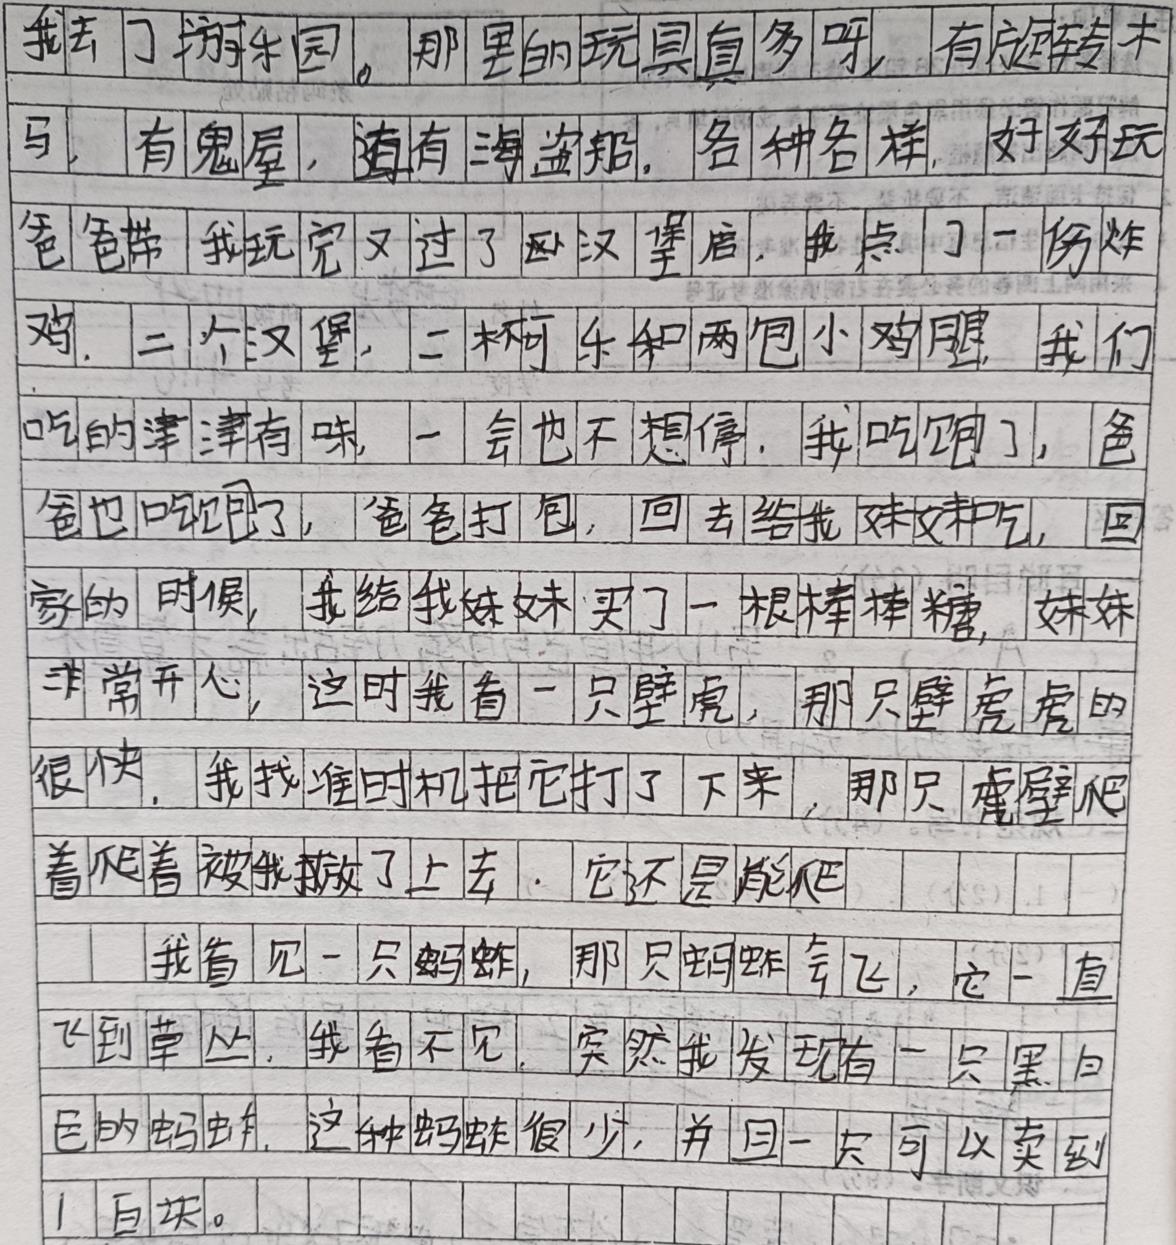 我去了游乐园。那里的玩具真多呀,有旋转木
马,有鬼屋,还有海盗船,各种各样,好好玩
爸爸带我玩完又过了去汉堡店,我点了一份炸
鸡,二个汉堡,二杯可乐和两包小鸡腿,我们
吃的津津有味,一会也不想停,我吃饱了,爸
爸也吃饱了,爸爸打包,回去给我妹妹吃,回
家的时候,我给我妹妹买了一根棒棒糖,妹妹
非常开心,这时我看一只壁虎,那只壁虎虎的
很快,我找准时机把它打了下来,那只虎壁爬
着爬着被我放了上去.它还是能爬
我看见一只蚂蚱,那只蚂蚱会飞,它一直
飞到草丛,我看不见,突然我发现有一只黑白
色的蚂蚱,这种蚂蚱很少,并且一只可以卖到
1百块。